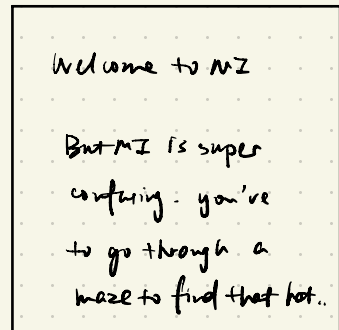 Welcome to MI
But MI is super
confusing. you've
to go through a
maze to find that hot..